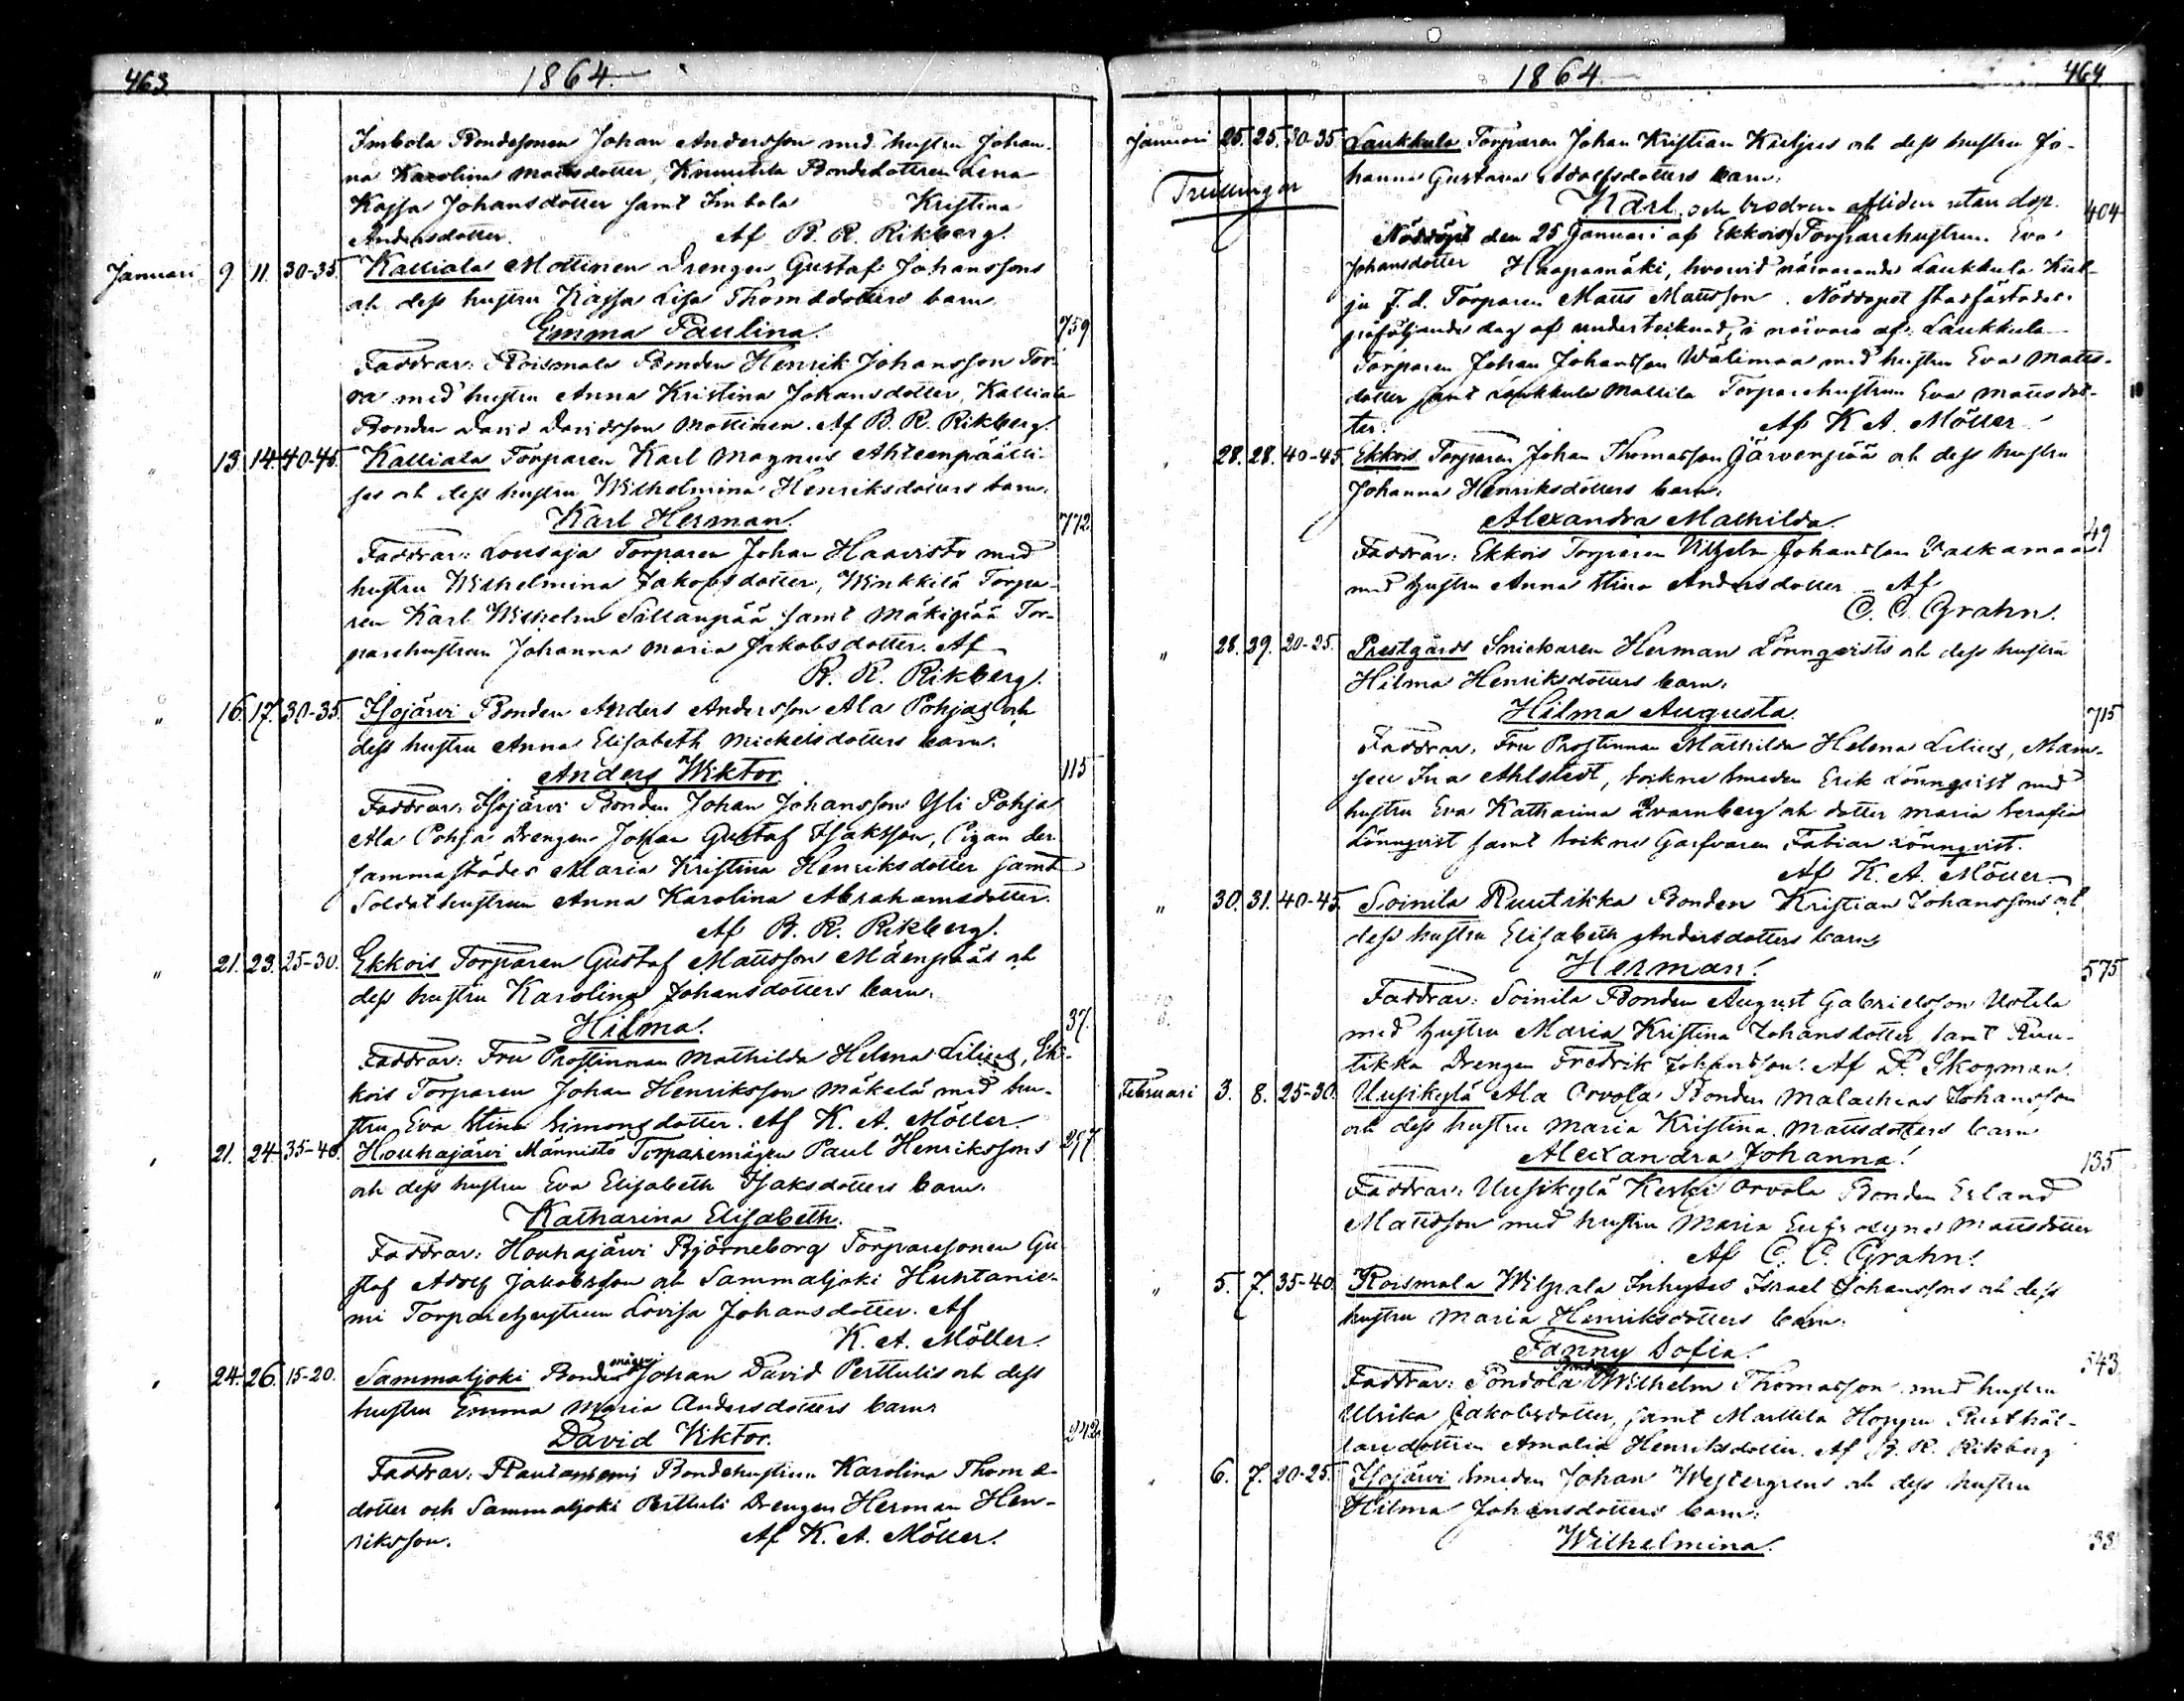 463 1864.
Imbola Bondesonen Johan Andersson med hustru Johan-
na Karolina Mattsdotter, Knuutila Bondedottren Lena
Kajsa Johansdotter samt Imbola Kristina
Andersdotter. Af B. R. Rikberg.
Januari 9. 11. 30-35. Kalliala Mottinen Drengen Gustaf Johanssons
och dess hustru Kajsa Lisa Thomædotters barn
Emma Paulina. 759
Faddrar: Roismala Bonden Henrik Johansson
med hustru Anna Kristina Johansdotter, Kalliala
Bonden David Davidsson Mottinen. Af B. R. Rikberg.
" 13. 14. 40-45. Kalliala Torparen Karl Magnus
och dess hustru Wilhelmina Henriksdotters barn.
Karl Herman. 772
Faddrar: Lousaja Torparen Johan Haavisto med
hustru Wilhelmina Jakobsdotter, Winkkilä Torpa-
ren Karl Wilhelm Sillanpää samt Mäkipää Tor-
parehustrun Johanna Maria Jakobsdotter. Af
B. R. Rikberg.
" 16. 17. 30-35. Isojärvi Bonden Anders Andersson Ala Pohjas och
dess hustru Anna Elisabeth Mickelsdotters barn.
Anders Wiktor. 115
Faddrar: Isojärvi Bonden Johan Johansson Yli Pohja
Ala Pohja Drengen Johan Gustaf Isaksson, Pigan der-
sammastädes Maria Kristina Henriksdotter samt
Soldathustrun Anna Karolina Abrahamsdotter.
Af B. R. Rikberg.
" 21. 23. 25-30. Ekkois Torparen Gustaf Mattsson Mäenpääs och
dess hustru Karolina Johansdotters barn.
Hilma. 37.
Faddrar: Fru Prostinnan Mathilda Helena Lilius, Ek-
kois Torparen Johan Henriksson Mäkelä med hu-
stru Eva Stina Simonsdotter. Af K. A. Möller.
" 21. 24. 35-40. Houhajärvi Männistö Torparemågen Paul Henrikssons 297
och dess hustru Eva Elisabeth Isaksdotters barn.
Katharina Elisabeth.
Faddrar: Houhajärvi Björneborg Torparesonen Gu-
staf Adolf Jakobsson och Sammaljoki Huhtanie-
mi Torparehustrun Lovisa Johansdotter. Af
K. A. Möller.
" 24. 26. 15-20. Sammaljoki Bondemågen Johan David Perttulis och dess
hustru Emma Maria Andersdotters barn.
David Viktor. 242
Faddrar: Rautaniemi Bondehustrun Karolina Thomæ-
dotter och Sammaljoki Perttuli Drengen Herman Hen-
riksson. Af K. A. Möller.
1864. 464
Januari 25. 25. 30-35 Laukkula Torparen Johan Kristian Kuljus och dess hustru Jo-
hanna Gustava Adolfsdotters barn.
Trillingar
Karl, och brodren afliden utan dop. 404
Nöddöpt den 25 Januari af Ekkois Torparehustrun Eva
Johansdotter Haapamäki, hvarvid närvarande Laukkula Kul-
ju f. d. Torparen Matts Mattsson. Nöddopet stadfästades
påföljande dag af undertecknad, i närvaro af: Laukkula
Torparen Johan Johansson Wälimaa med hustru Eva Matts-
dotter samt Laukkula Mattila Torparehustrun Eva Mattsdot-
ter. Af K. A. Möller.
" 28. 28. 40-45. Ekkois Torparen Johan Thomasson Järvenpää och dess hustru
Johanna Henriksdotters barn.
Alexandra Mathilda. 49
Faddrar: Ekkois Torparen Vilhelm Johansson Vaskamaa
med hustru Anna Stina Andersdotter. Af
C. C. Grahn.
" 28. 29. 20-25. Prestgårds Snickaren Herman Lönnqvists och dess hustru
Hilma Henriksdotters barn.
Hilma Augusta. 715
Faddrar: Fru Prostinnan Mathilda Helena Lilius, Mam-
sell Ina Ahlstedt, Sockne Smeden Erik Lönnqvist med
hustru Eva Katharina Qvarnberg och dotter Maria Serafia
Lönnqvist samt Sockne Garfvaren Fabian Lönnqvist.
Af K. A. Möller.
" 30. 31. 40-45. Soinila Ruutikka Bonden Kristian Johanssons och
dess hustru Elisabeth Andersdotters barn
Herman. 575
Faddrar: Soinila Bonden August Gabrielsson Uotila
med hustru Maria Kristina Johansdotter samt Ruu-
tikka Drengen Fredrik Johansson. Af D. Skogman.
Februari 3. 8. 25-30. Uusikylä Ala Orvola Bonden Malachias Johansson
och dess hustru Maria Kristina Mattsdotters barn
Alexandra Johanna. 135
Faddrar: Uusikylä Keski Orvola Bonden Erland
Mattsson med hustru Maria Eufrosyne Mattsdotter
Af C. C. Grahn.
" 5. 7. 35-40. Roismala Wilpala Inhyses Israel Johanssons och dess
hustru Maria Henriksdotters barn.
Fanny Sofia. 543
Faddrar: Pöndölä Bonden Wilhelm Thomasson med hustru
Ulrika Jakobsdotter, samt Marttila Hoppu Rusthål-
laredottren Amalia Henriksdotter. Af B. R. Rikberg
" 6. 7. 20-25. Isojärvi Smeden Johan Westergrens och dess hustru
Hilma Johansdotters barn.
Wilhelmina. 33